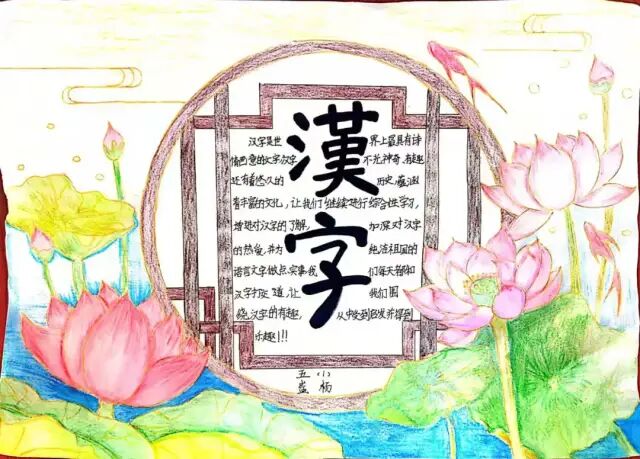 漢字
汉字是世界上最具有诗
情画意的文字汉字不光神奇、有趣
还有着悠久的历史,蕴涵
着丰富的文化,让我们继续进行综合性学习,
增进对汉字的了解,加深对汉字
的热爱,并为纯洁祖国的
语言文字做些实事,我们每天都和
汉字打交道,让我们围
绕汉字的有趣,从中受到启发并得到
乐趣!!!
五(1)
盛杨